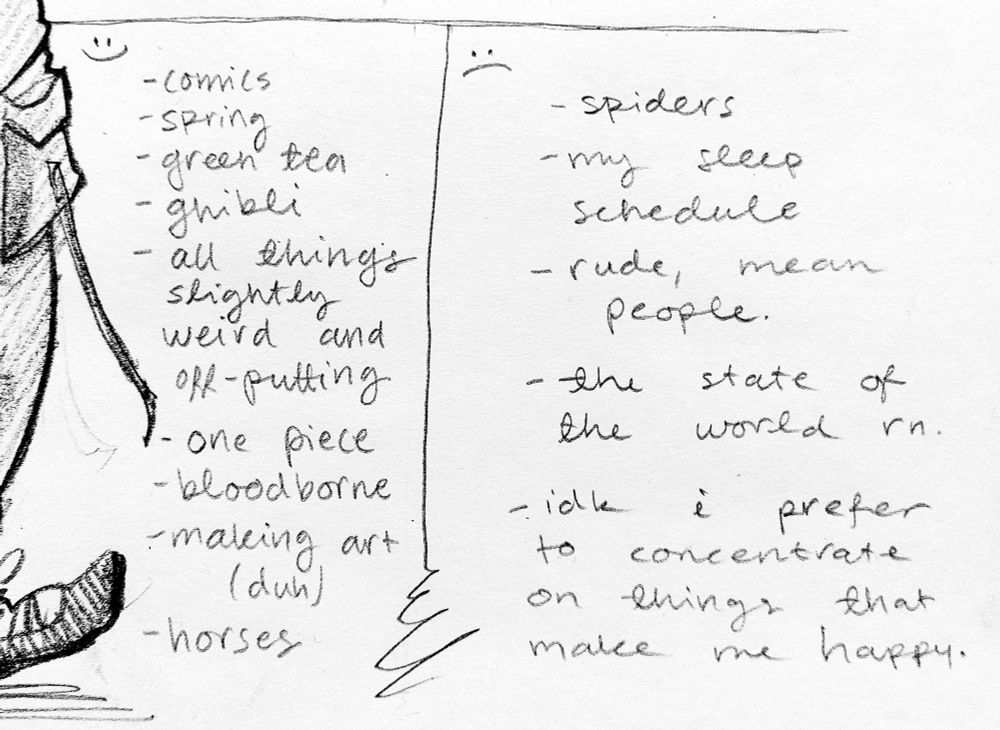 - comics
- spring
- green tea
- ghibli
- all things
slightly
weird and
off-putting
- one piece
- bloodborne
- making art
(duh)
- horses
- spiders
- my sleep
schedule
- rude, mean
people.
- the state of
the world rn.
- idk i prefer
to concentrate
on things that
make me happy.